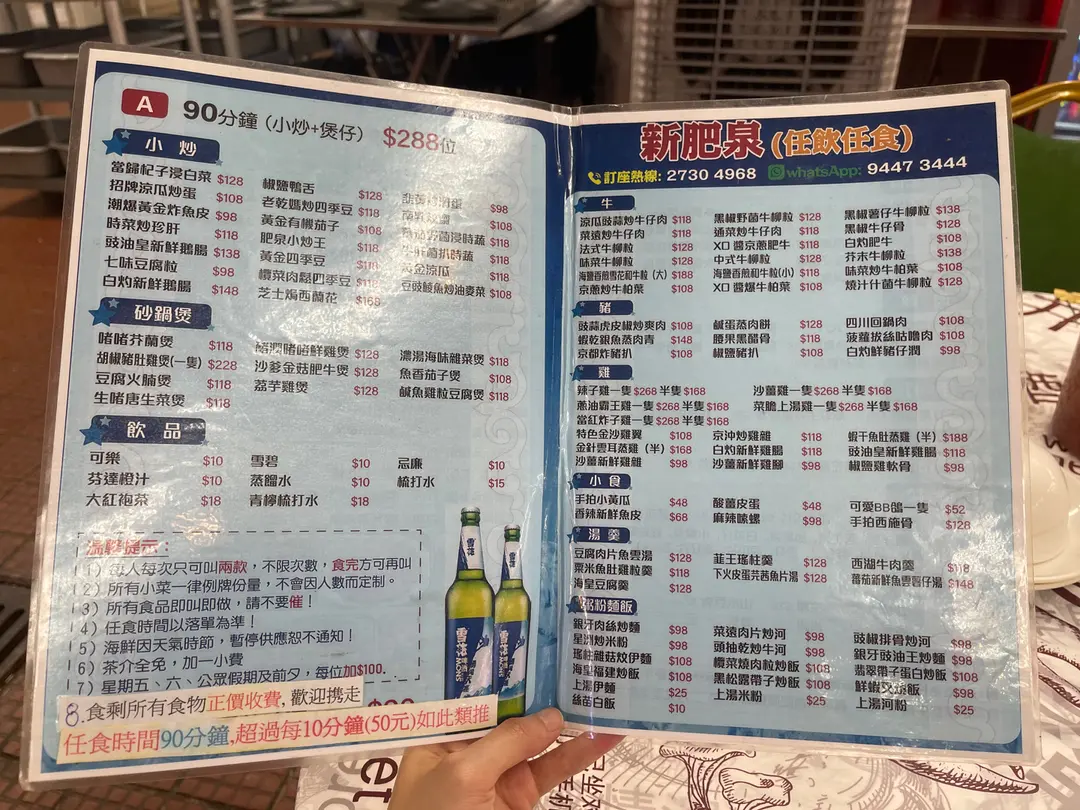 A 90分鐘 (小炒+煲仔) $288位
小炒
當歸杞子浸白菜 $128
招牌涼瓜炒蛋 $108
潮爆黃金炸魚皮 $98
時菜炒珍肝 $118
豉油皇新鮮鵝腸 $138
七味豆腐粒 $98
白灼新鮮鵝腸 $148
椒鹽鴨舌 $128
老乾媽炒四季豆 $118
黃金有機茄子 $108
肥泉小炒王 $118
黃金四季豆 $118
欖菜肉鬆四季豆
芝士焗西蘭花 $168
$98
$108
浸時蔬 $118
扒時蔬 $118
黃金涼瓜 $118
豆豉鯪魚炒油麥菜 $108
砂鍋煲
啫啫芥蘭煲 $118
胡椒豬肚雞煲(一隻) $228
豆腐火腩煲 $118
生啫唐生菜煲 $118
豬潤啫啫鮮雞煲 $128
沙爹金菇肥牛煲 $128
荔芋雞煲 $128
濃湯海味雜菜煲 $118
魚香茄子煲 $108
鹹魚雞粒豆腐煲 $118
飲品
可樂 $10
芬達橙汁 $10
大紅袍茶 $18
雪碧 $10
蒸餾水 $10
青檸梳打水 $18
忌廉 $10
梳打水 $15
溫馨提示：
1) 每人每次只可叫兩款，不限次數，食完方可再叫
2) 所有小菜一律例牌份量，不會因人數而定制。
3) 所有食品即叫即做，請不要催！
4) 任食時間以落單為準！
5) 海鮮因天氣時節，暫停供應恕不通知！
6) 茶介全免，加一小費
7) 星期五、六、公眾假期及前夕，每位加$100.
8.食剩所有食物正價收費,歡迎携走
任食時間90分鐘,超過每10分鐘(50元)如此類推
新肥泉(任飲任食)
訂座熱線: 2730 4968 whatsApp: 9447 3444
牛
涼瓜豉蒜炒牛仔肉 $118
菜遠炒牛仔肉 $118
法式牛柳粒 $128
味菜牛柳粒 $128
海鹽香煎雪花和牛粒 (大) $188
京蔥炒牛柏葉 $108
黑椒野菌牛柳粒 $128
通菜炒牛仔肉 $118
XO 醬京蔥肥牛 $118
中式牛柳粒 $128
海鹽香煎和牛粒(小) $118
XO 醬爆牛柏葉 $108
黑椒薯仔牛柳粒 $138
黑椒牛仔骨 $128
白灼肥牛 $108
芥末牛柳粒 $138
味菜炒牛柏葉 $108
燒汁什菌牛柳粒 $128
豬
豉蒜虎皮椒炒爽肉 $108
蝦乾銀魚蒸肉青 $148
京都炸豬扒 $108
鹹蛋蒸肉餅 $128
腰果黑醋骨 $118
椒鹽豬扒 $108
四川回鍋肉 $108
菠蘿拔絲咕嚕肉 $108
白灼鮮豬仔潤 $98
雞
辣子雞一隻$268 半隻$168
蔥油霸王雞一隻$268 半隻$168
當紅炸子雞一隻$268 半隻$168
特色金沙雞翼 $108
金針雲耳蒸雞 (半) $168
沙薑新鮮雞雜 $98
沙薑雞一隻$268 半隻$168
菜脆上湯雞一隻$268 半隻$168
京沖炒雞雜 $118
白灼新鮮雞腸 $118
沙薑新鮮雞腳 $98
蝦干魚肚蒸雞 (半) $188
豉油皇新鮮雞腸 $118
椒鹽雞軟骨 $98
小食
手拍小黃瓜 $48
香辣新鮮魚皮 $68
酸薑皮蛋 $48
麻辣㗎螺 $98
可愛BB鴿一隻 $52
手拍西施骨 $128
湯羹
豆腐肉片魚雲湯 $128
粟米魚肚雞粒羹 $118
海皇豆腐羹 $128
韮王瑤柱羹 $128
下火皮蛋芫茜魚片湯 $128
西湖牛肉羹 $118
蕃茄新鮮魚雲薯仔湯 $148
粥粉麵飯
銀牙肉絲炒麵 $98
星洲炒米粉 $98
瑤柱雜菇炆伊麵 $108
海皇福建炒飯 $108
上湯伊麵 $25
絲苗白飯 $10
菜遠肉片炒河 $98
頭抽乾炒牛河 $98
欖菜燒肉粒炒飯 $108
黑松露帶子炒飯 $108
上湯米粉 $25
豉椒排骨炒河 $98
銀牙豉油王炒麵 $98
翡翠帶子蛋白炒飯 $108
鮮蝦叉燒飯 $98
上湯河粉 $25